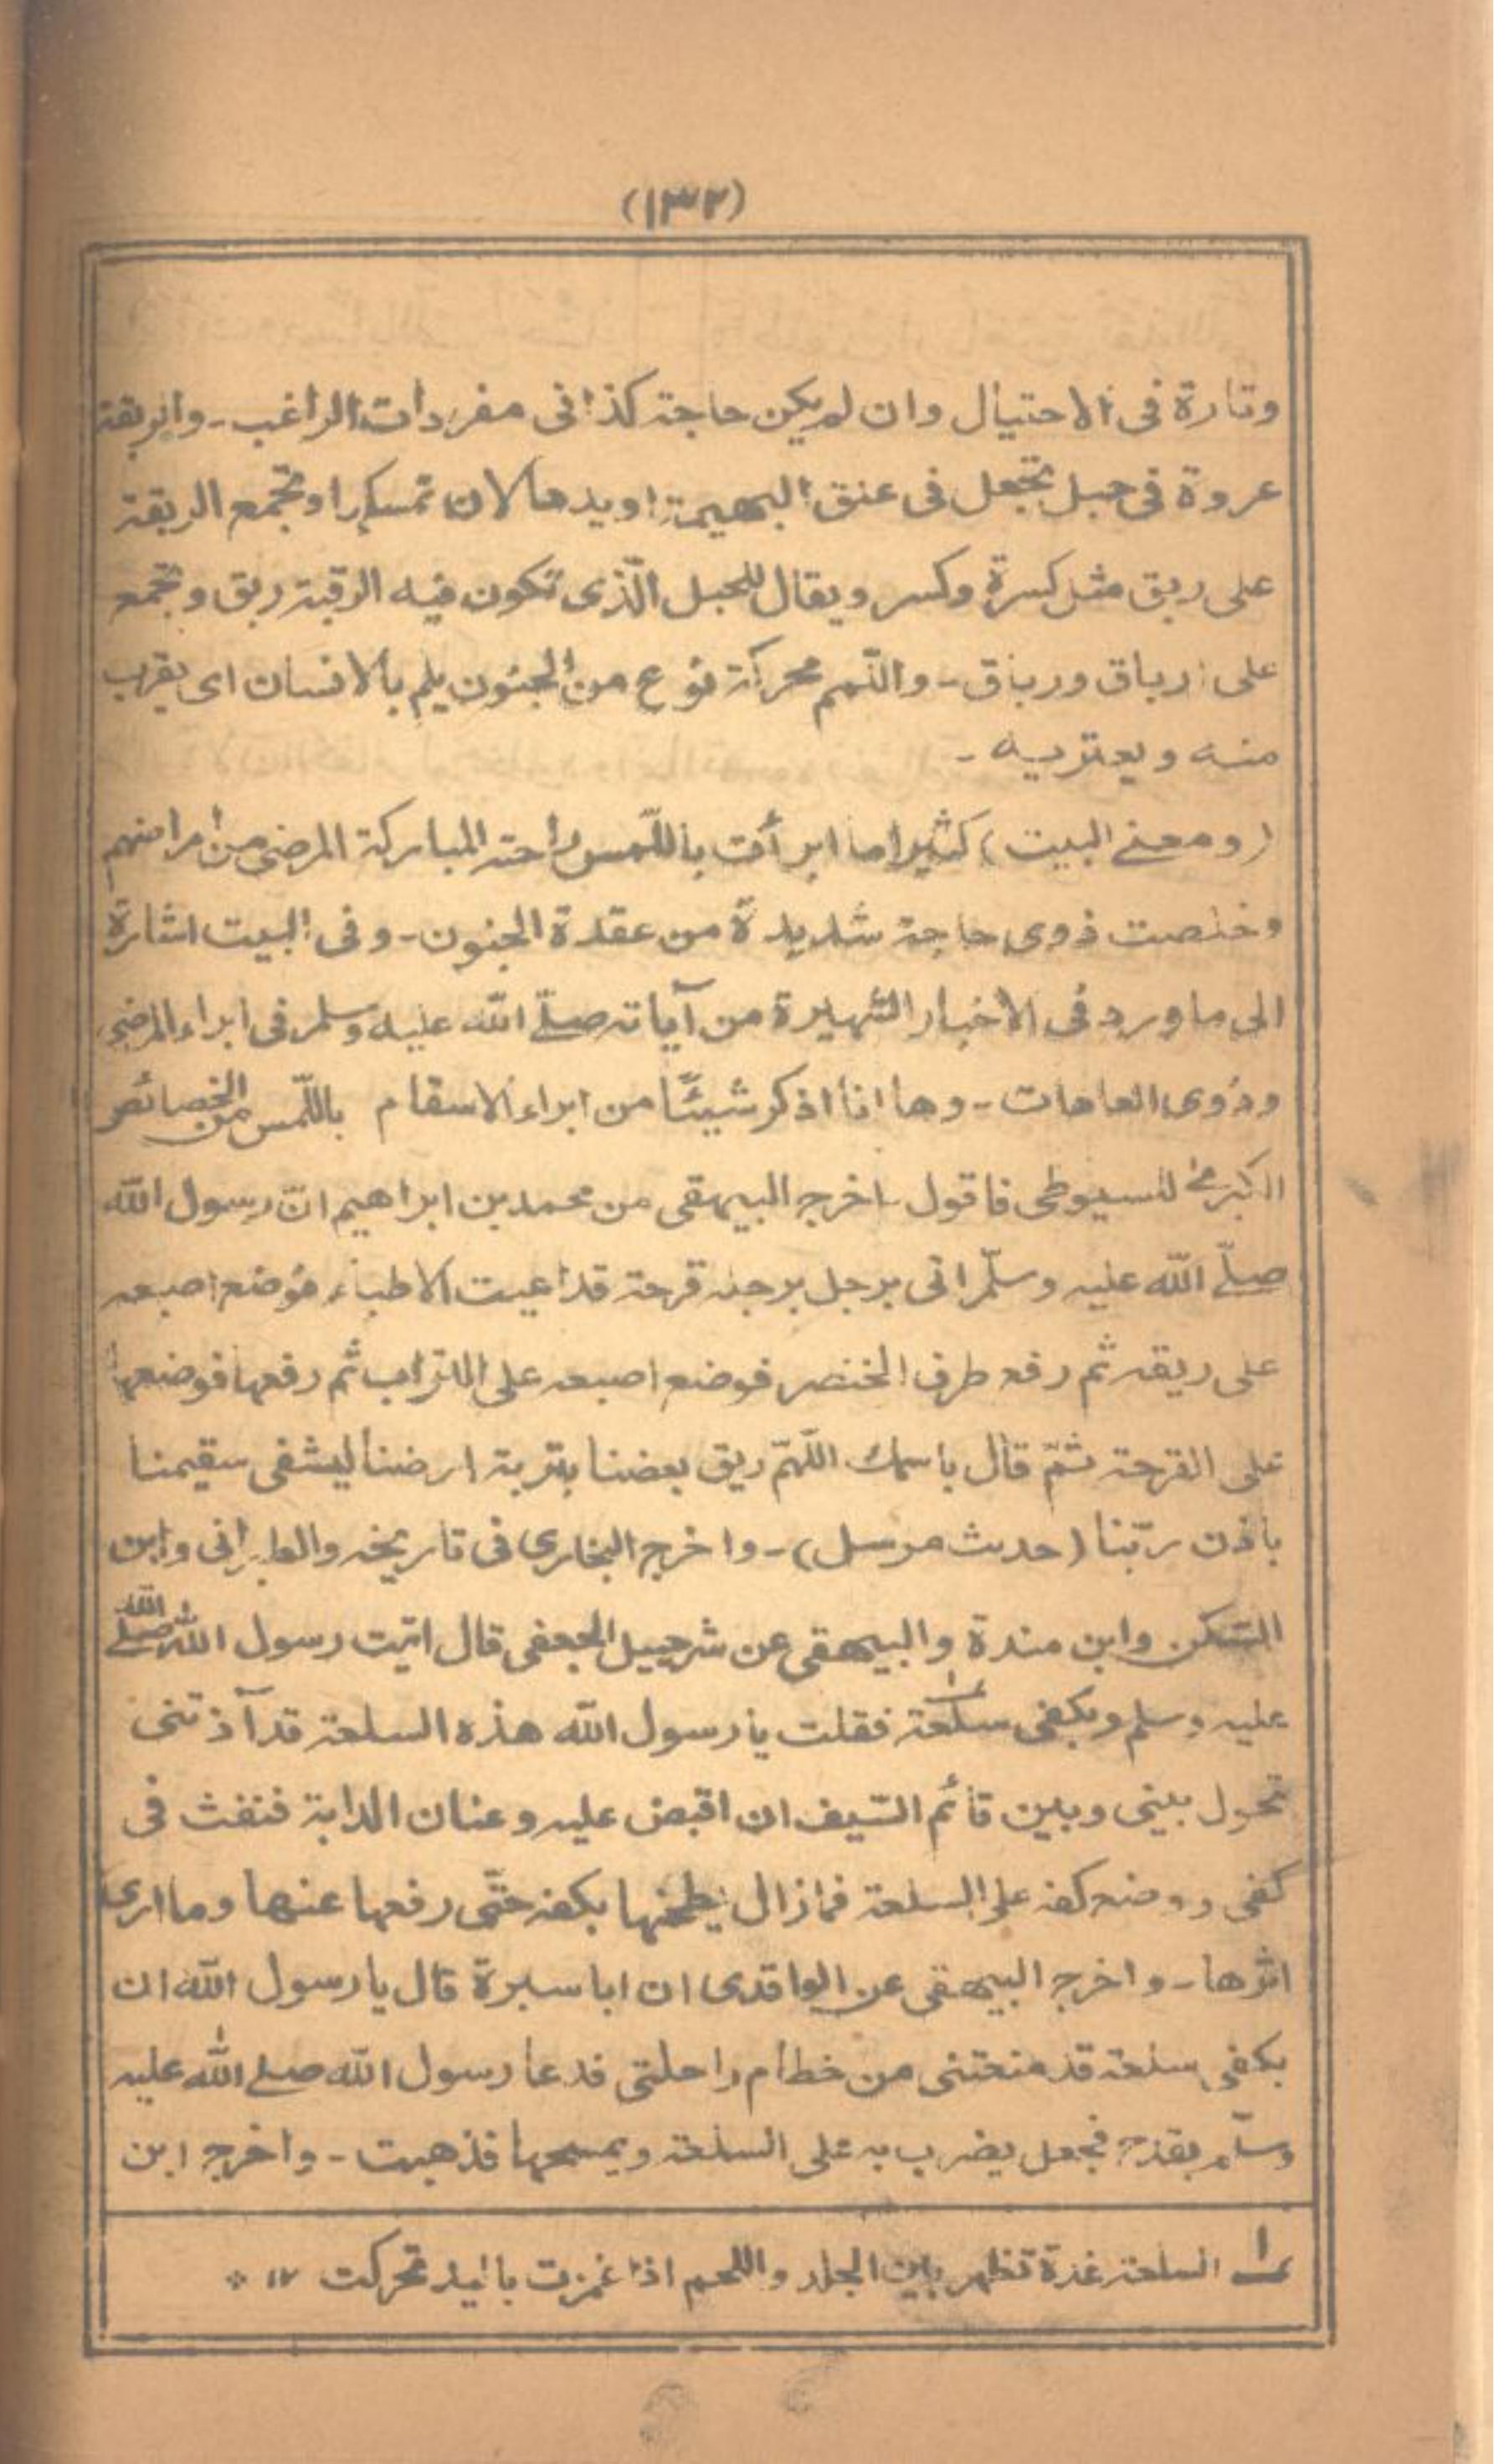 (١٣٢)
وتارة فى الاحتيال وان لم يكن حاجة كذا فى مفردات الراغب ـ والربقة
عروة فى حبل تجعل فى عنق البهيمة او يدها لان تمسكرا وتجمع الربقة
على ربق مثل كسرة وكسر ويقال للحبل الّذى تكون فيه الرقبة ربق وتجمع
على ارباق ورباق ـ واللّمم محركة نوع من الجنون يلم بالانسان اى يقرب
منه ويعتريه ـ
(ومعنے البيت) كثيرا ما ابرأت باللّمس راحته المباركة المرضى من امراضهم
وخلصت ذوى حاجة شديدة من عقدة الجنون ـ وفى البيت اشارة
الى ما ورد فى الاخبار الشهيرة من آياته صلّے اللّه عليه وسلم فى ابراء المرضى
وذوى العاهات ـ وها انا اذكر شيئًا من ابراء الاسقام باللّمس من الخصائص
الكبرى للسيوطى فاقول اخرج البيهقى من محمد بن ابراهيم انّ رسول اللّه
صلّے اللّه عليه وسلّم اتى برجل برجله قرحة قد اعيت الاطباء فوضع اصبعه
على ريقه ثم رفع طرف الخنصر فوضع اصبعه على التراب ثم رفعها فوضعها
على القرحة ثمّ قال باسمك اللّهمّ ريق بعضنا بتربة ارضنا ليشفى سقيمنا
باذن ربّنا (حديث مرسل) ـ واخرج البخارى فى تاريخه والطبرانى وابن
السّكن وابن مندة والبيهقى عن شرحبيل الجعفى قال اتيت رسول اللّه صلے اللّه
عليه وسلم وبكفى سلعة١ فقلت يا رسول اللّه هذه السلعة قد آذتنى
تحول بينى وبين قائم السّيف ان اقبض عليه وعنان الدابة فنفث فى
كفى ووضع كفه على السلعة فما زال يطحنها بكفه حتّى رفعها عنها وما ارى
اثرها ـ واخرج البيهقى عن الواقدى ان ابا سبرة قال يا رسول اللّه ان
بكفى سلعة قد منعتنى من خطام راحلتى فدعا رسول اللّه صلے اللّه عليه
وسلّم بقدح فجعل يضرب به على السلعة ويمسحها فذهبت ـ واخرج ابن
١ السلعة غدة تظهر بين الجلد واللحم اذا غمزت باليد تحركت ١٢ *